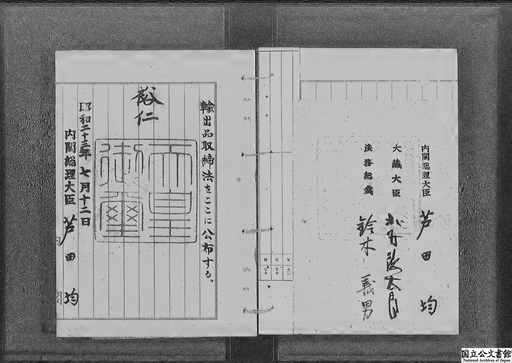 内閣総理大臣 芦田均
大蔵大臣 北村徳太郎
法務総裁 鈴木義男
輸出品取締法をここに公布する。
裕仁
天皇
御璽
昭和二十三年七月十二日
内閣総理大臣 芦田均
国立公文書館
National Archives of Japan